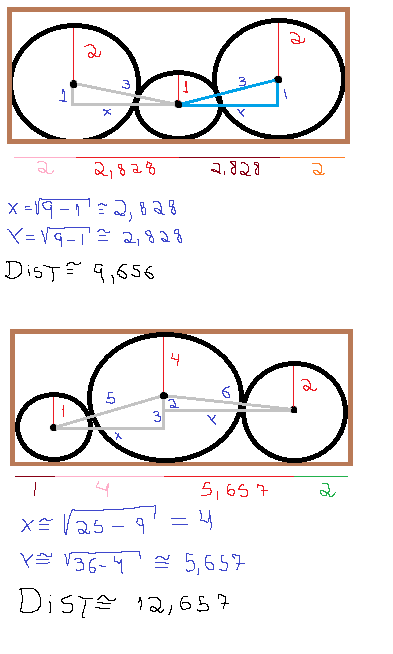 2
2
1
3
1
3
1
x
Y
2 2,828 2,828 2
X=√9-1 ≅ 2,828
Y=√9-1 ≅ 2,828
DisT ≅ 9,656
4
1
5
2
6
2
3
x
Y
1 4 5,657 2
X≅√25-9 = 4
Y≅√36-4 ≅ 5,657
DisT≅ 12,657